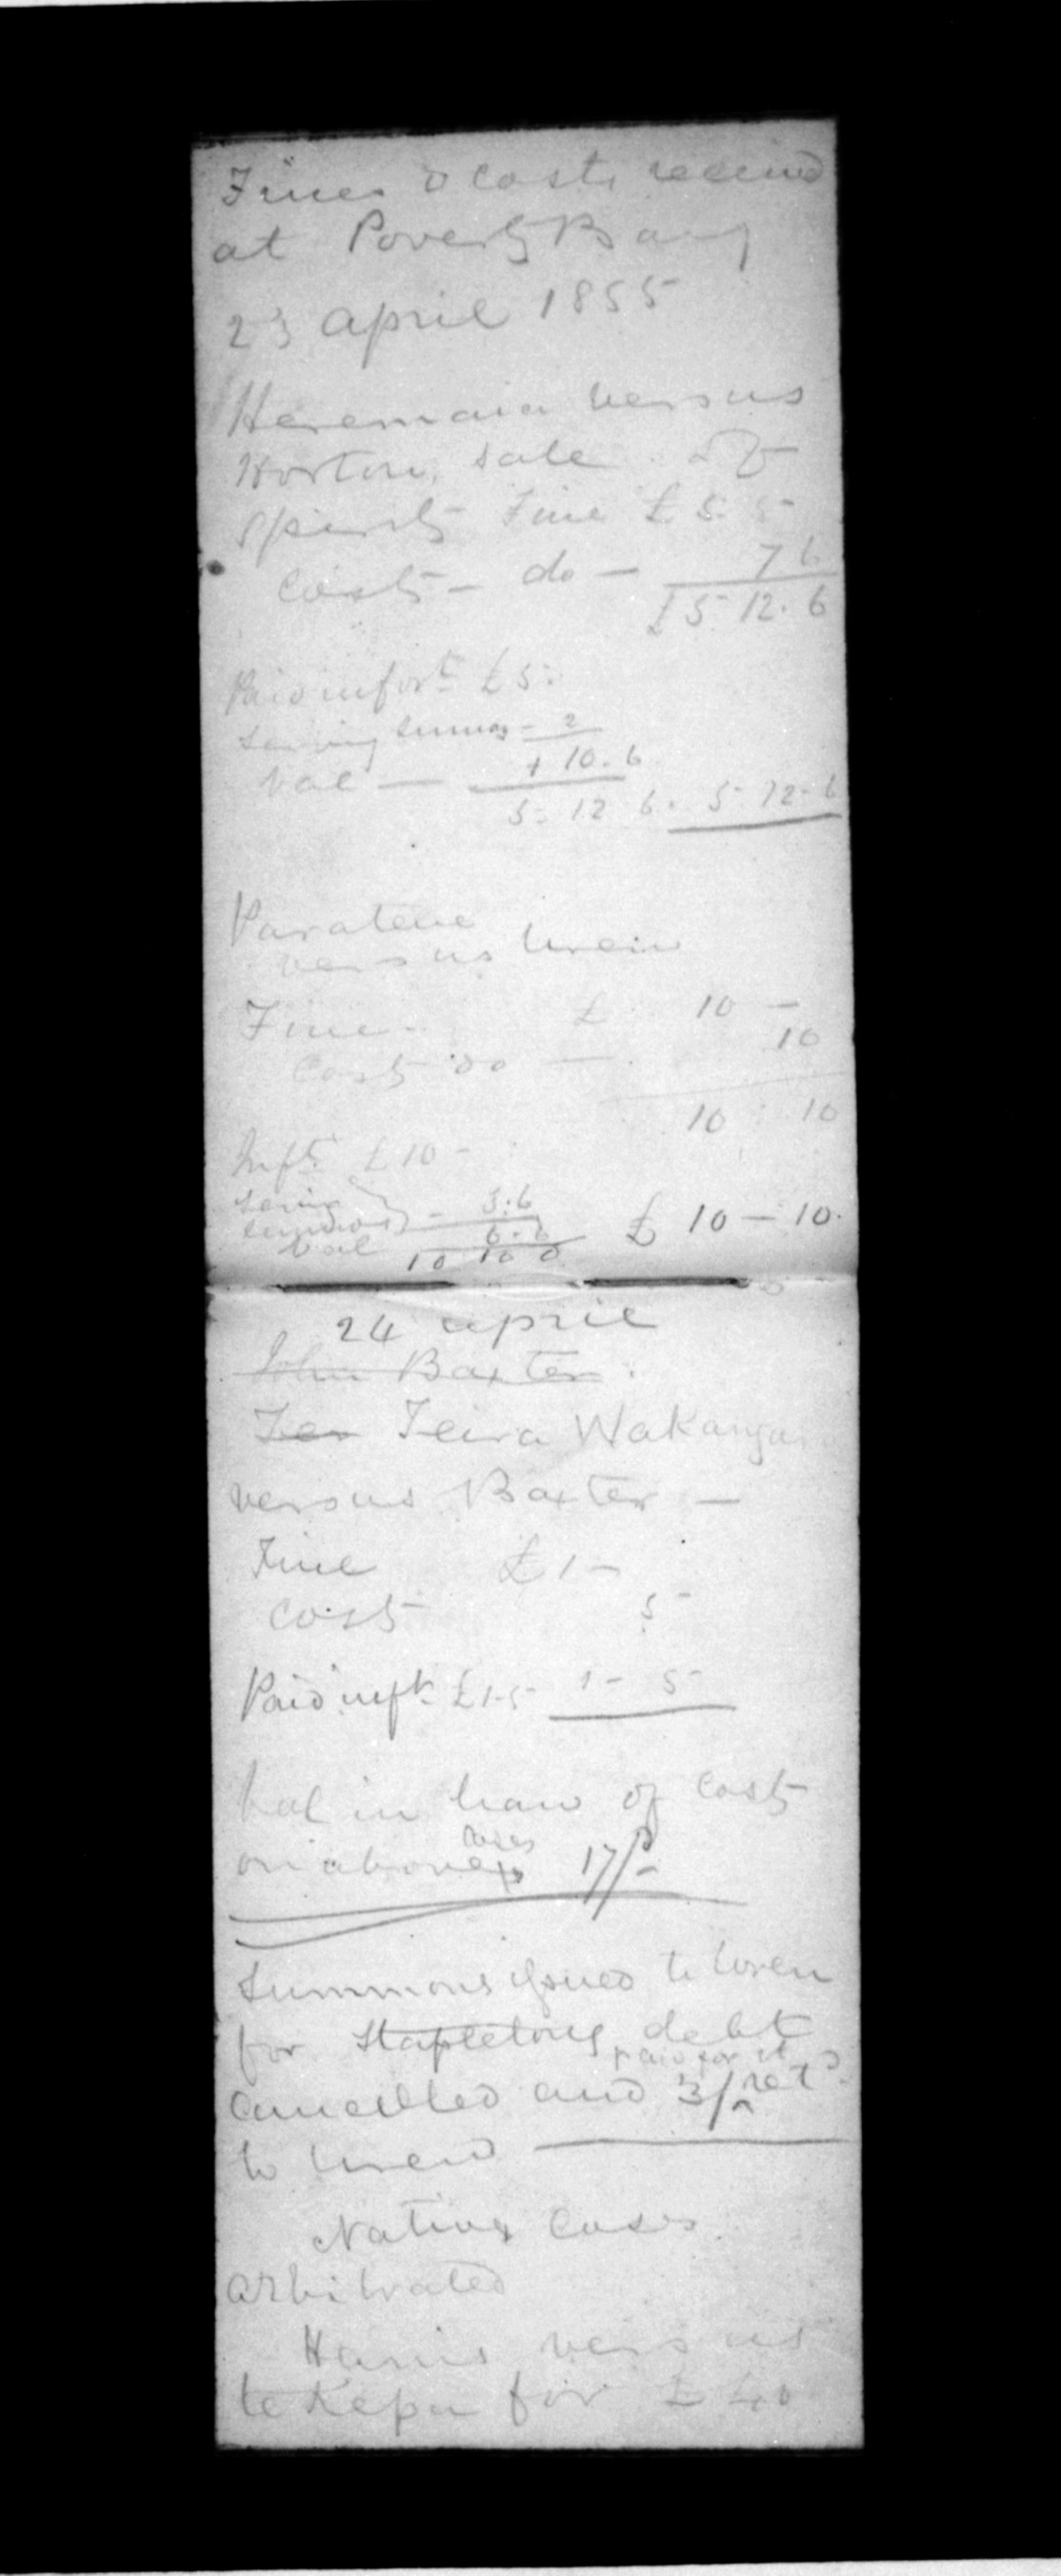 Fines & costs received
at Poverty Bay
23 April 1855
Heremaia versus
Horton, sale of
Spirits Fine £5. 5 -
Costs - do - 7 6
£5 12. 6
Paid inft £5.
Serving summos - 2
bal — + 10. 6
5. 12 6. 5 12. 6
Paratene
versus Uren
Fine £ 10 -
Costs do — 10
10 : 10
Inft £10 -
Serving
summos - 3.6
bal 6. 6
10 10 0 £ 10 - 10.
24 april
John Baxter.
Ter Teira Wakanga
versus Baxter —
Fine £1 -
Costs 5 -
Paid inft £1-5- 1 - 5 -
bal in han of costs
on above cases 17/-
Summons issued to Uren
for Stapletons debt
paid for it
cancelled and 3/- retd
to Uren —
Native cases
arbitrated
Harris versus
te Kepa for £40